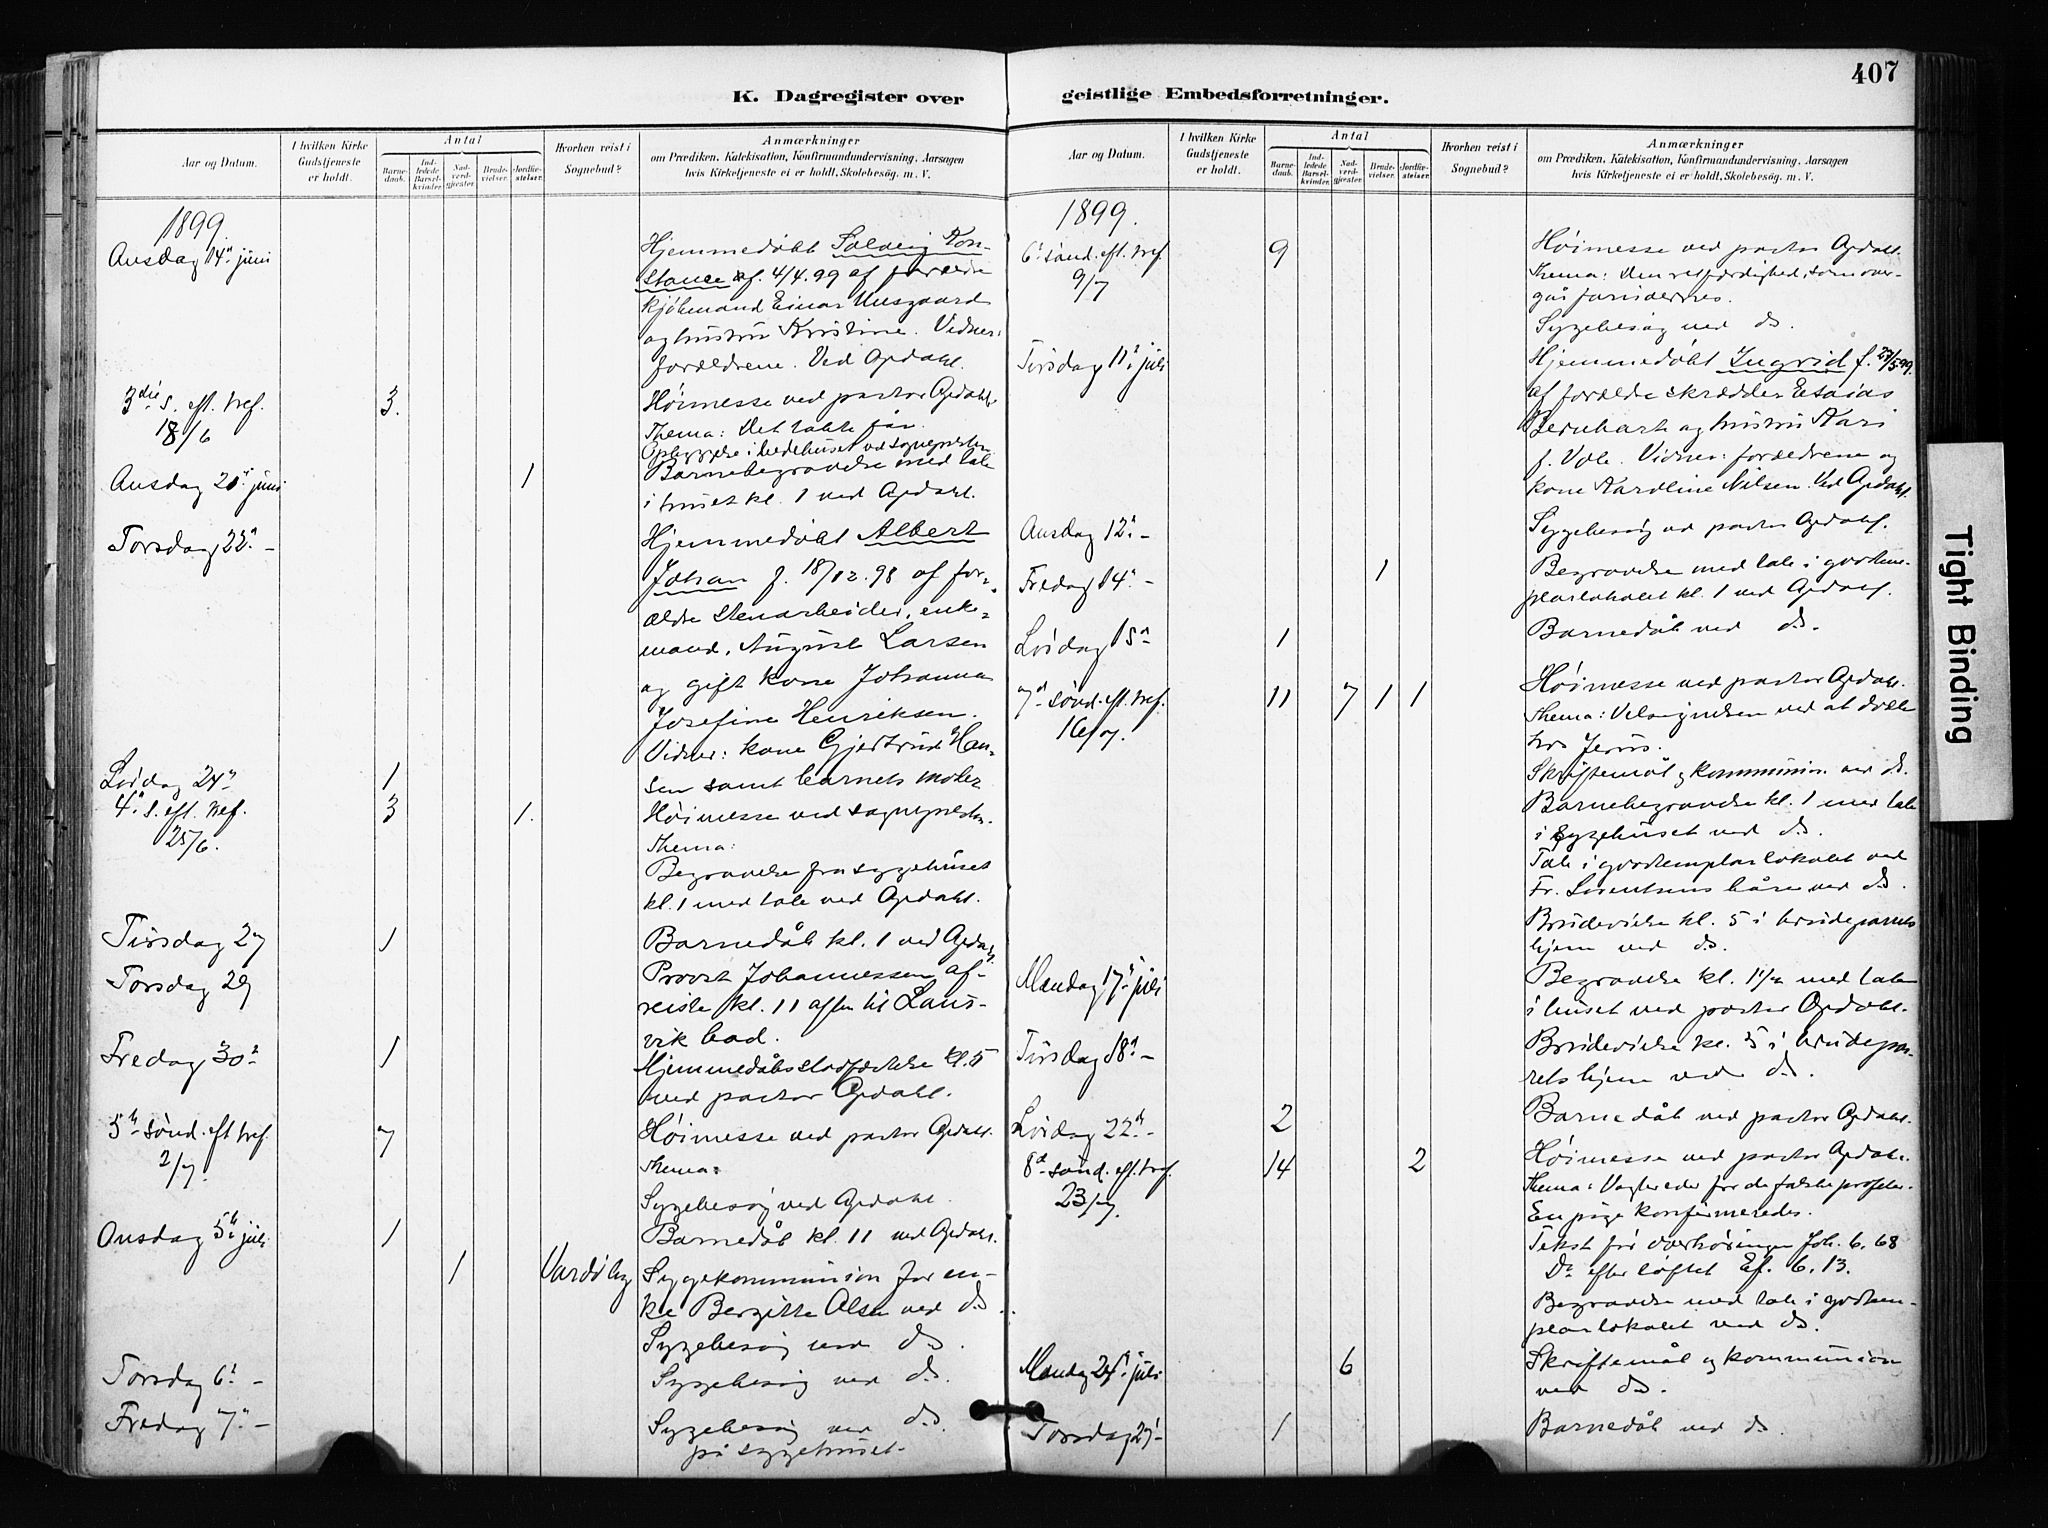 407
K. Dagregister over geistlige Embedsforretninger.
Aar og Datum.
I hvilken Kirke Gudstjeneste er holdt.
Antal
Barnedaab.
Indledede Barselkvinder.
Nadverdgjester.
Brudevielser.
Jordfæstelser.
Hvorhen reist i Sognebud?
Anmærkninger
om Prædiken, Katekisation, Konfirmandundervisning, Aarsagen
hvis Kirketjeneste ei er holdt, Skolebesøg. m. V.
1899.
Onsdag 14. juni
Hjemmedøbt Solveig Kon-
stance f. 4/4.99 af forældre
kjøbmand Einar
og hustru Kristine. Vidner:
forældrene. Ved Opdahl.
3die s. eft. tref.
18/6
3.
Høimesse ved pastor Opdahl.
Thema: Det tabte får.
Opbyggelse i bedehuset ved sognepresten
Onsdag 21 juni
1
Barnebegravelse med tale
i huset kl. 1 ved Opdahl.
Torsdag 22. –
Hjemmedøbt Albert
Johan f. 18/12.98 af for-
ældre Stenarbeider, enke-
mand, August Larsen
og gift kone Johanna
Josefine Henriksen.
Vidner: kone Gjertrud Han-
sen samt barnets moder
Lørdag 24
1
4. s. eft. tref.
25/6.
3
1.
Høimesse ved sognepresten.
Thema:
Begravelse fra sygehuset
kl. 1 med tale ved Opdahl.
Tirsdag 27
1
Barnedåb kl. 1 ved Opdahl
Torsdag 29
Provst Johannessen af-
reiste kl. 11 aften til Laus-
vik bad.
Fredag 30
1
Hjemmedåbsstadfæstelse kl. 5
ved pastor Opdahl.
5. sønd. eft tref.
2/7.
7
Høimesse ved pastor Opdahl.
Thema:
Sygebesøg ved Opdahl.
Onsdag 5. juli
1
Barnedåb kl. 11 ved Opdahl.
1
Vardø by
Sygekommunion for en-
ke Bergitte Olsen ved ds.
Sygebesøg ved ds.
Torsdag 6. –
Sygebesøg ved ds.
Fredag 7. –
Sygebesøg ved ds
på sygehuset.
Aar og Datum.
I hvilken Kirke Gudstjeneste er holdt.
Antal
Barnedaab.
Indledede Barselkvinder.
Nadverdgjester.
Brudevielser.
Jordfæstelser.
Hvorhen reist i Sognebud?
Anmærkninger
om Prædiken, Katekisation, Konfirmandundervisning, Aarsagen
hvis Kirketjeneste ei er holdt, Skolebesøg. m. V.
1899.
6. sønd. eft. tref.
9/7
9
Høimesse ved pastor Opdahl.
Thema: Den retfærdighed, som over-
går farisæernes.
Sygebesøg ved ds.
Tirsdag 11. juli
Hjemmedøbt Ingrid f. 23/5.99.
af forældre skrædder Esaias
Bernhart og hustru Kari
f. Vole. Vidner: forældrene og
kone Karoline Nilsen. Ved Opdahl.
Onsdag 12. –
Sygebesøg ved pastor Opdahl.
Fredag 14. –
1
Begravelse med tale i godtem-
plarlokalet kl. 1 ved Opdahl.
Lørdag 15. –
1
Barnedåb ved ds.
7. sønd. eft. tref.
16/7.
11
7
1
1
Høimesse ved pastor Opdahl.
Thema: Velsignelsen ved at dvæle
hos Jesus.
Skriftemål og kommunion ved ds.
Barnebegravelse kl. 1 med tale
i sygehuset ved ds.
Tale i godtemplarlokalet ved
Fr. Lorentsens båre ved ds.
Brudevielse kl. 5 i brudeparrets
hjem ved ds.
Mandag 17. juli
Begravelse kl. 1 1/2 med tale
i huset ved pastor Opdahl.
Tirsdag 18. –
Brudevielse kl. 5 i brudepar-
rets hjem ved ds.
Lørdag 22. –
2
Barnedåb ved pastor Opdahl.
8. sønd. eft. tref.
23/7.
14
2
Høimesse ved pastor Opdahl.
Thema: Vogter eder for de falske profeter.
En pige konfirmeredes.
Tekst før overhøringen Joh. 6, 68
Do efter løftet Ef. 6, 13.
Begravelse med tale i godtem-
plarlokalet ved ds.
Mandag 24. juli
6
Skriftemål og kommunion
ved ds.
Torsdag 27. –
1
Barnedåb ved ds.
Tight Binding